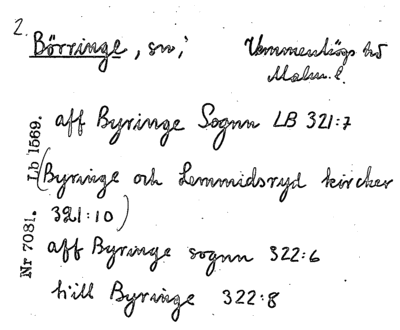 2.
Börringe, sn,
Vemmenhögs hd
Malm. l.
aff Byringe Sognn LB 321:7
(Byringe och Lemmidsryd kircker
321:10)
aff Byringe sognn 322:6
till Byringe 322:8
Nr 7081. Lb 1569.